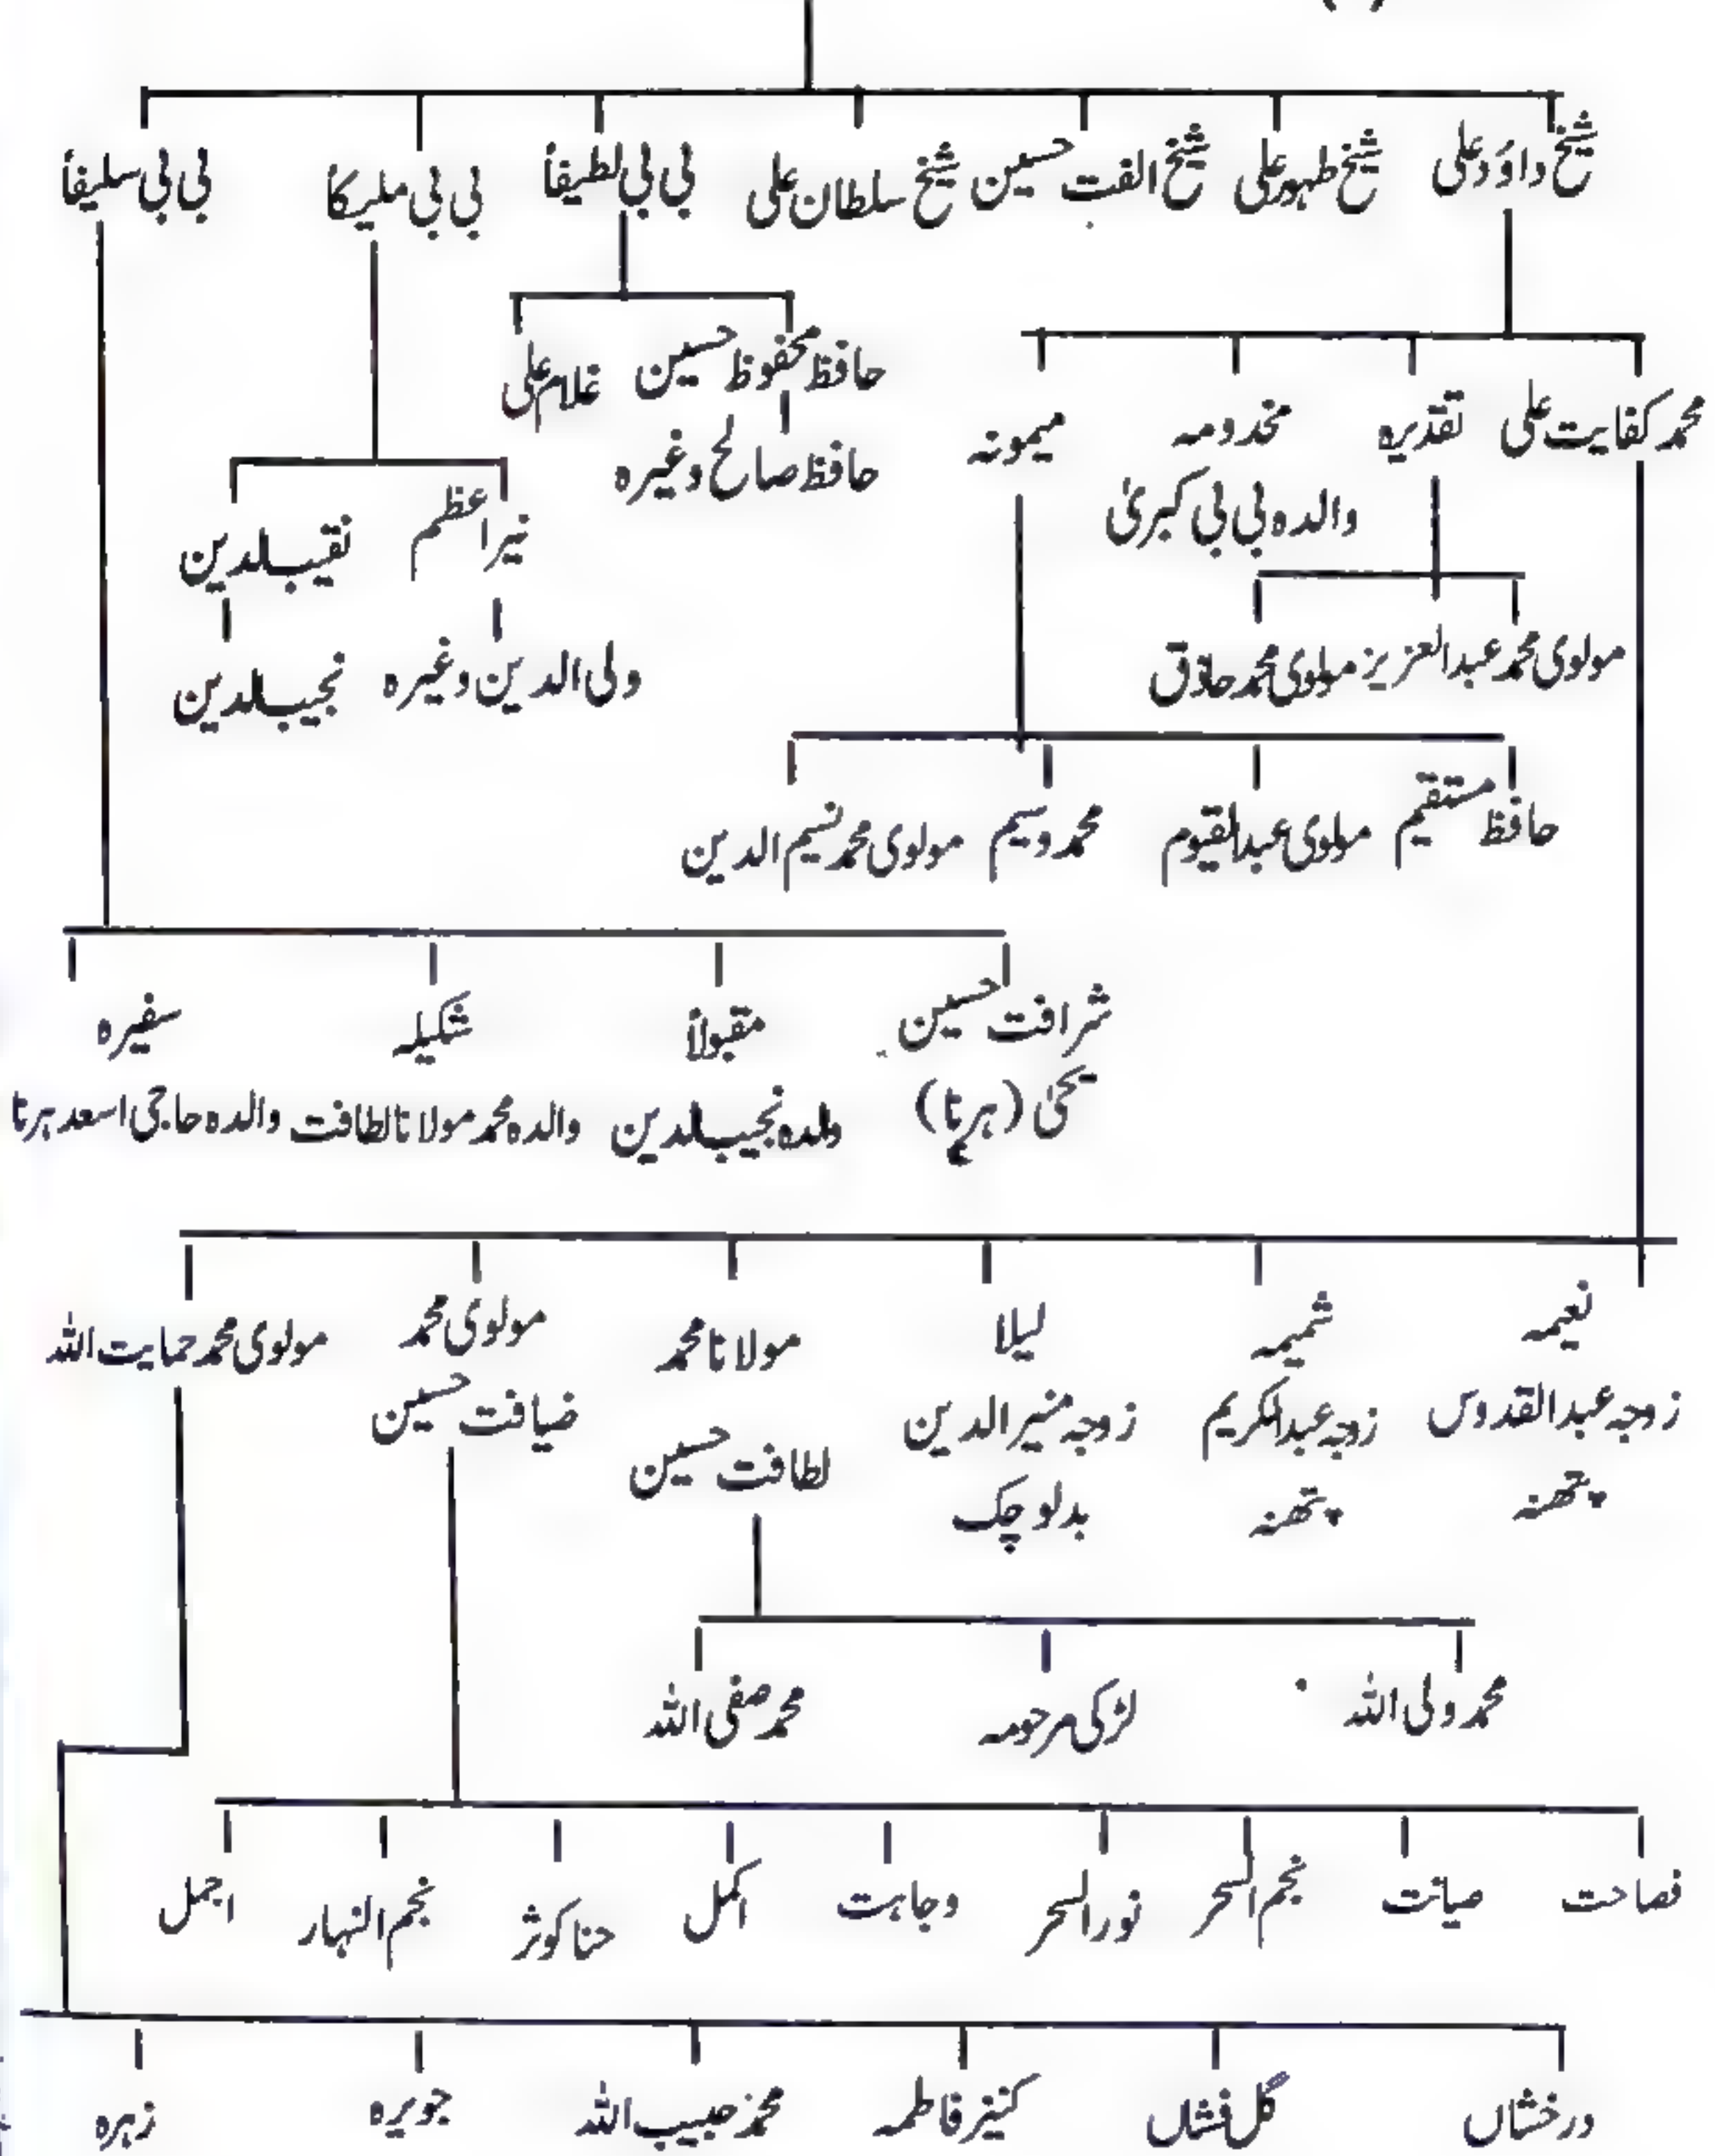 شیخ داؤد علی شیخ ظہور علی شیخ الفت حسین شیخ سلطان علی بی بی لطیفاً بی بی ملیکاً بی بی سلیفاً
حافظ محفوظ حسین غلام علی
محمد کفایت علی تقدیرہ مخدومہ میمونہ
حافظ صالح وغیرہ
والدہ بی بی کبریٰ
نیر اعظم نقیب الدین
مولوی محمد عبدالعزیز مولوی محمد حاذق
ولی الدین وغیرہ نجیب الدین
حافظ مستقیم مولوی عبدالقیوم محمد وسیم مولوی محمد نسیم الدین
شرافت حسین مقبولاً شکیلہ سفیرہ
یحیٰ (ہرپٹا) والدہ نجیب الدین والدہ محمد مولانا لطافت والدہ حاجی اسعد ہرنا
نعیمہ شمیمہ لیلا مولانا محمد مولوی محمد مولوی محمد حمایت اللہ
زوجہ عبدالقدوس زوجہ عبدالکریم زوجہ منیر الدین لطافت حسین ضیافت حسین
پتھنہ پتھنہ بدلو چک
محمد ولی اللہ لڑکی مرحومہ محمد صفی اللہ
فصاحت صیانت نجم السحر نور السحر وجاہت اکمل حنا کوثر نجم النہار اجمل
درخشاں گل فشاں کنیز فاطمہ محمد حبیب اللہ جویرہ زہرہ